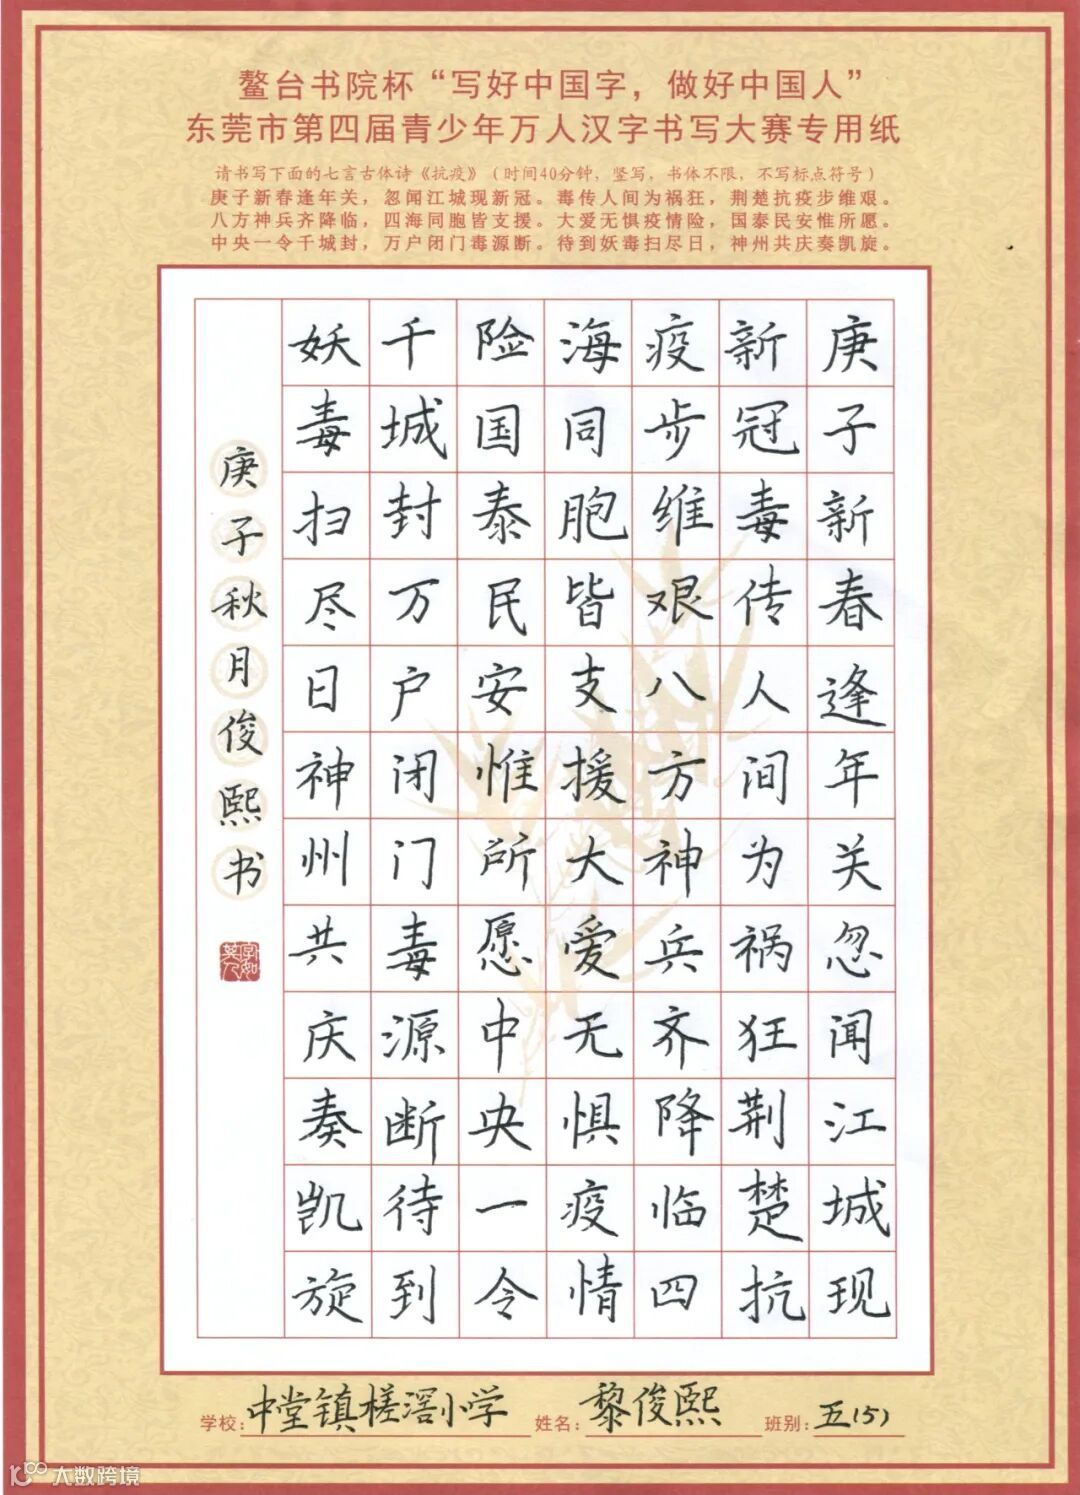 鳌台书院杯“写好中国字，做好中国人”
东莞市第四届青少年万人汉字书写大赛专用纸
请书写下面的七言古体诗《抗疫》（时间40分钟，竖写，书体不限，不写标点符号）
庚子新春逢年关，忽闻江城现新冠。毒传人间为祸狂，荆楚抗疫步维艰。
八方神兵齐降临，四海同胞皆支援。大爱无惧疫情险，国泰民安惟所愿。
中央一令千城封，万户闭门毒源断。待到妖毒扫尽日，神州共庆奏凯旋。
庚子新春逢年关忽闻江城现
新冠毒传人间为祸狂荆楚抗
疫步维艰八方神兵齐降临四
海同胞皆支援大爱无惧疫情
险国泰民安惟所愿中央一令
千城封万户闭门毒源断待到
妖毒扫尽日神州共庆奏凯旋
庚子秋月俊熙书
字如其人
学校：中堂镇槎滘小学 姓名：黎俊熙 班别：五(5)
大数跨境